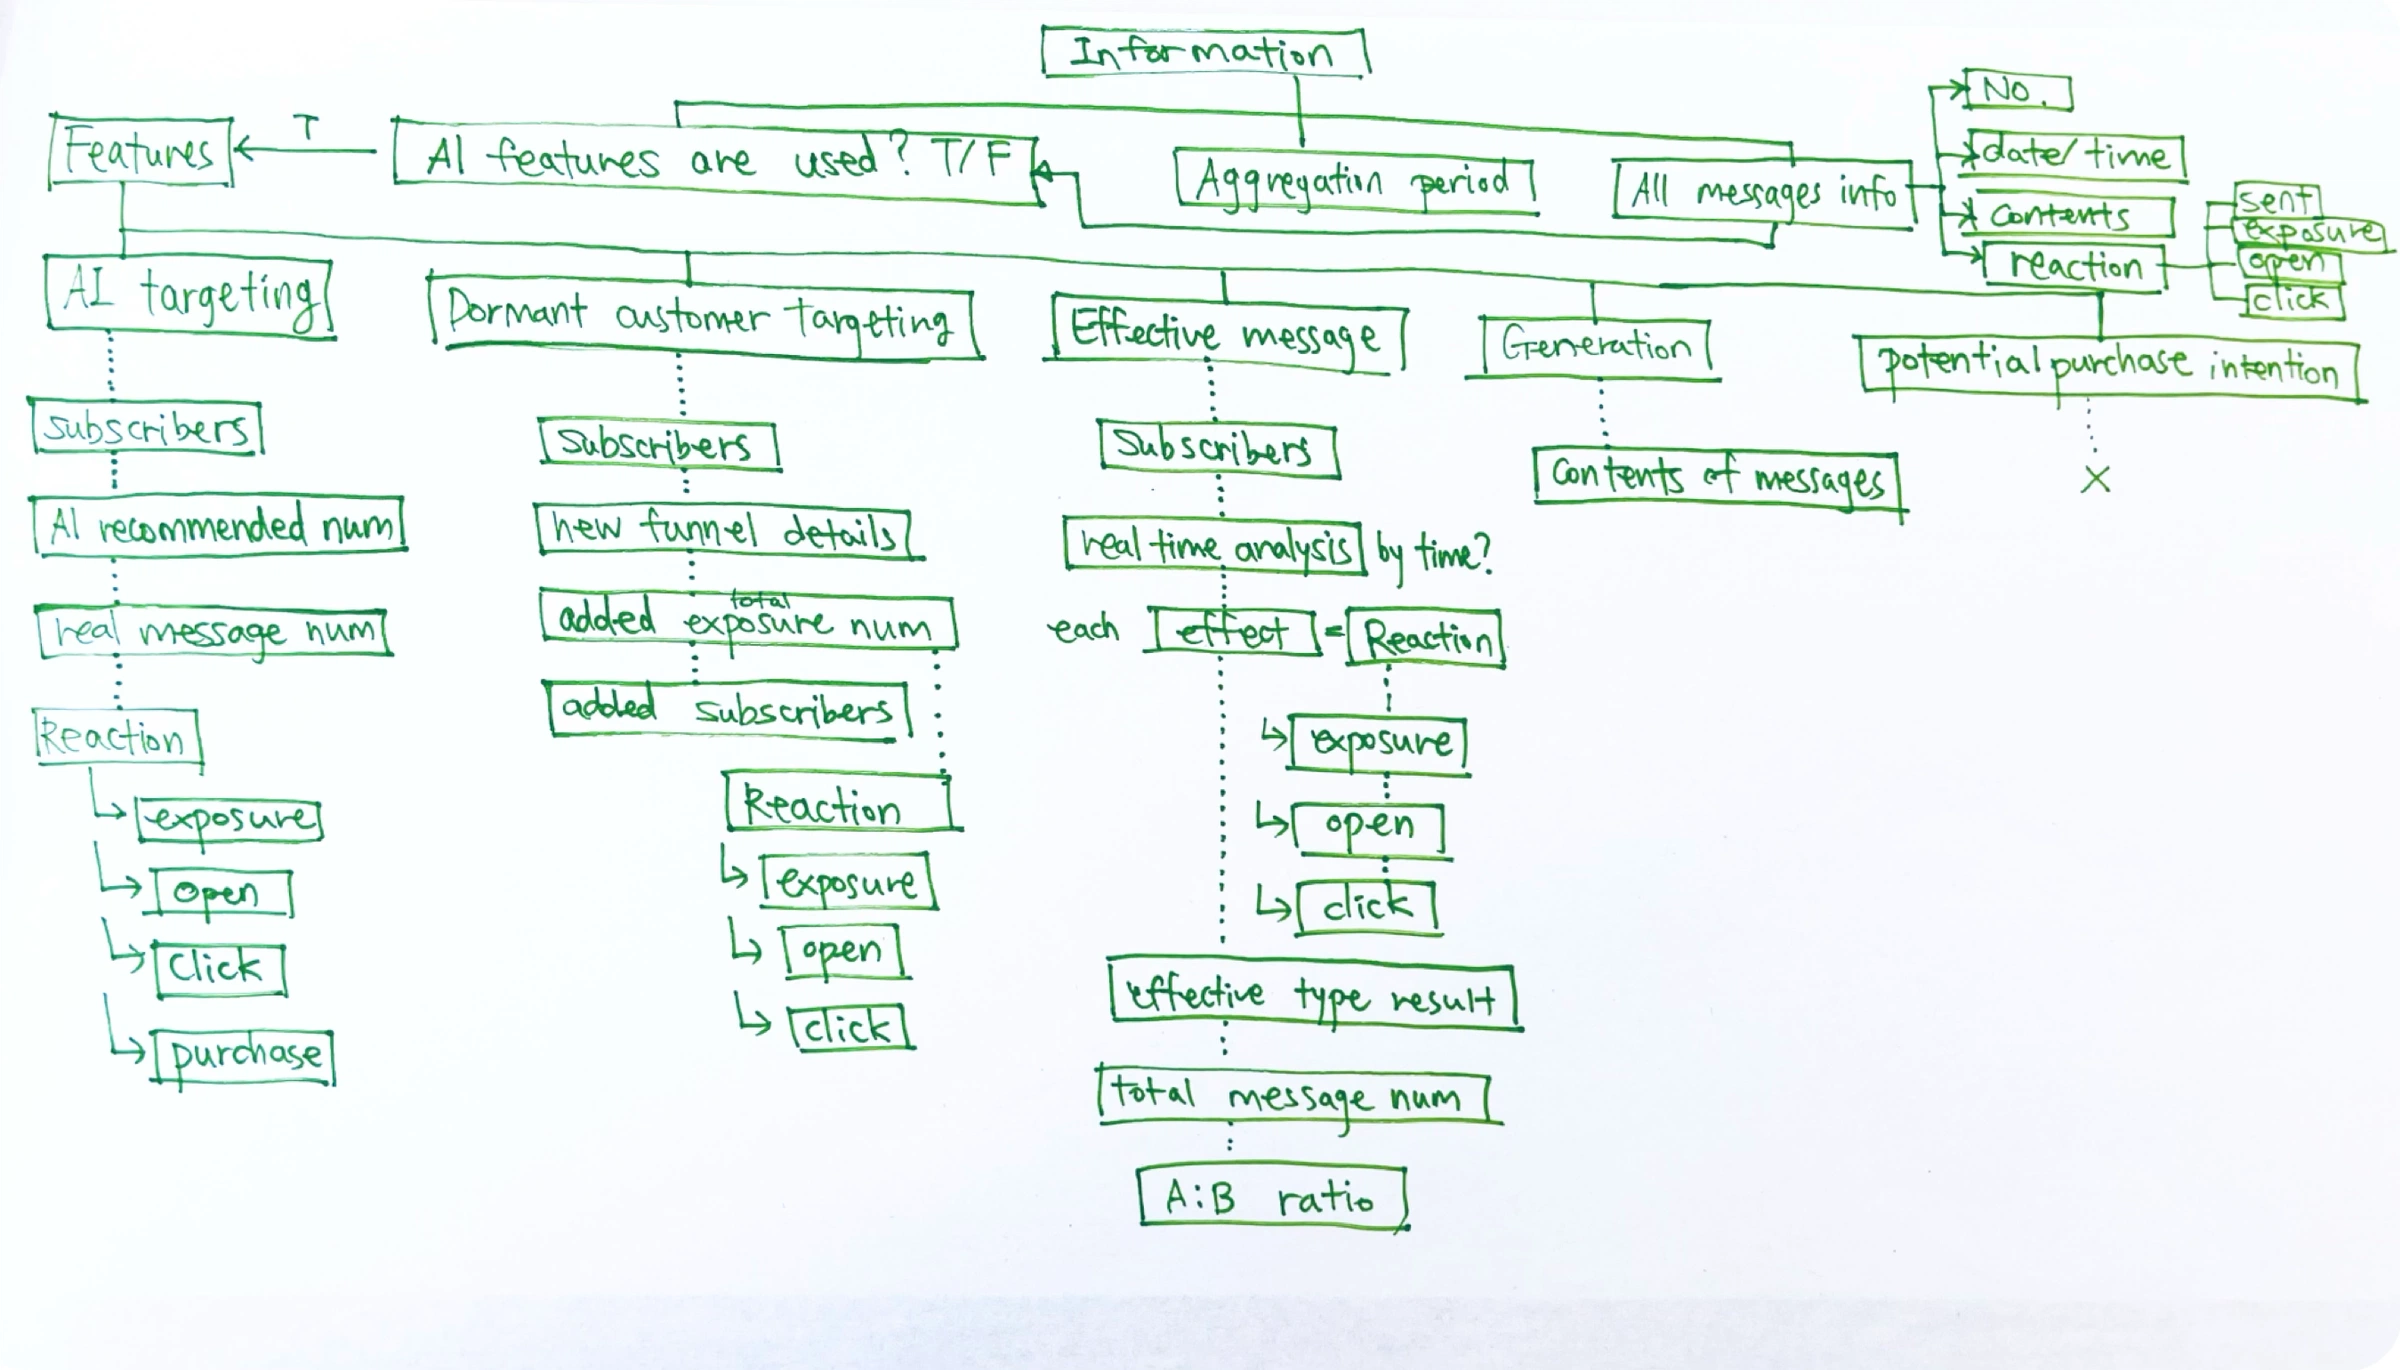 Information
No.
T
Features
AI features are used? T/F
Aggregation period
All messages info
date/time
contents
reaction
sent
exposure
open
click
AI targeting
Dormant customer targeting
Effective message
Generation
potential purchase intention
subscribers
AI recommended num
real message num
Reaction
exposure
open
click
purchase
subscribers
new funnel details
total
added exposure num
added subscribers
Reaction
exposure
open
click
Subscribers
real time analysis by time?
each effect = Reaction
exposure
open
click
effective type result
total message num
A:B ratio
contents of messages
X